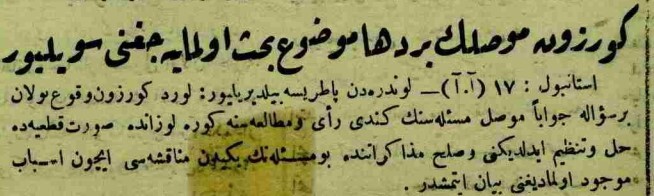 كورزون موصلك بر دها موضوع بحث اولمايه جغنى سويليور
استانبول : ١٧ (آ.آ) — لوندره‌دن پاطريسه بيلديريليور : لورد كورزون وقوع بولان
برسؤاله جواباً موصل مسئله‌سنك كندى رأى ومطالعه‌سنه كوره لوزانده صورت قطعيه‌ده
حل وتنظيم ايدلديكنى وصلح مذاكراتنده بومسئله‌نك يكيدن مناقشه‌سى ايچون اسباب
موجود اولماديغنى بيان ايتمشدر .